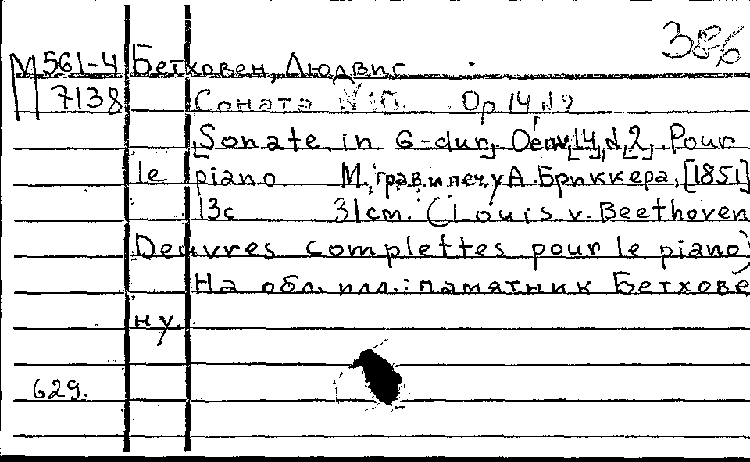 386
М 561-4 Бетховен, Людвиг
7138 Соната №10. Op 14, №2
Sonate in G-dur, Oeuv[14], №[2]. Pour
le piano М., грав. и печ. у А. Бриккера, [1851]
13с 31см. (Louis v. Beethoven
Oeuvres complettes pour le piano)
На обл. илл.: памятник Бетхове
ну.
629.